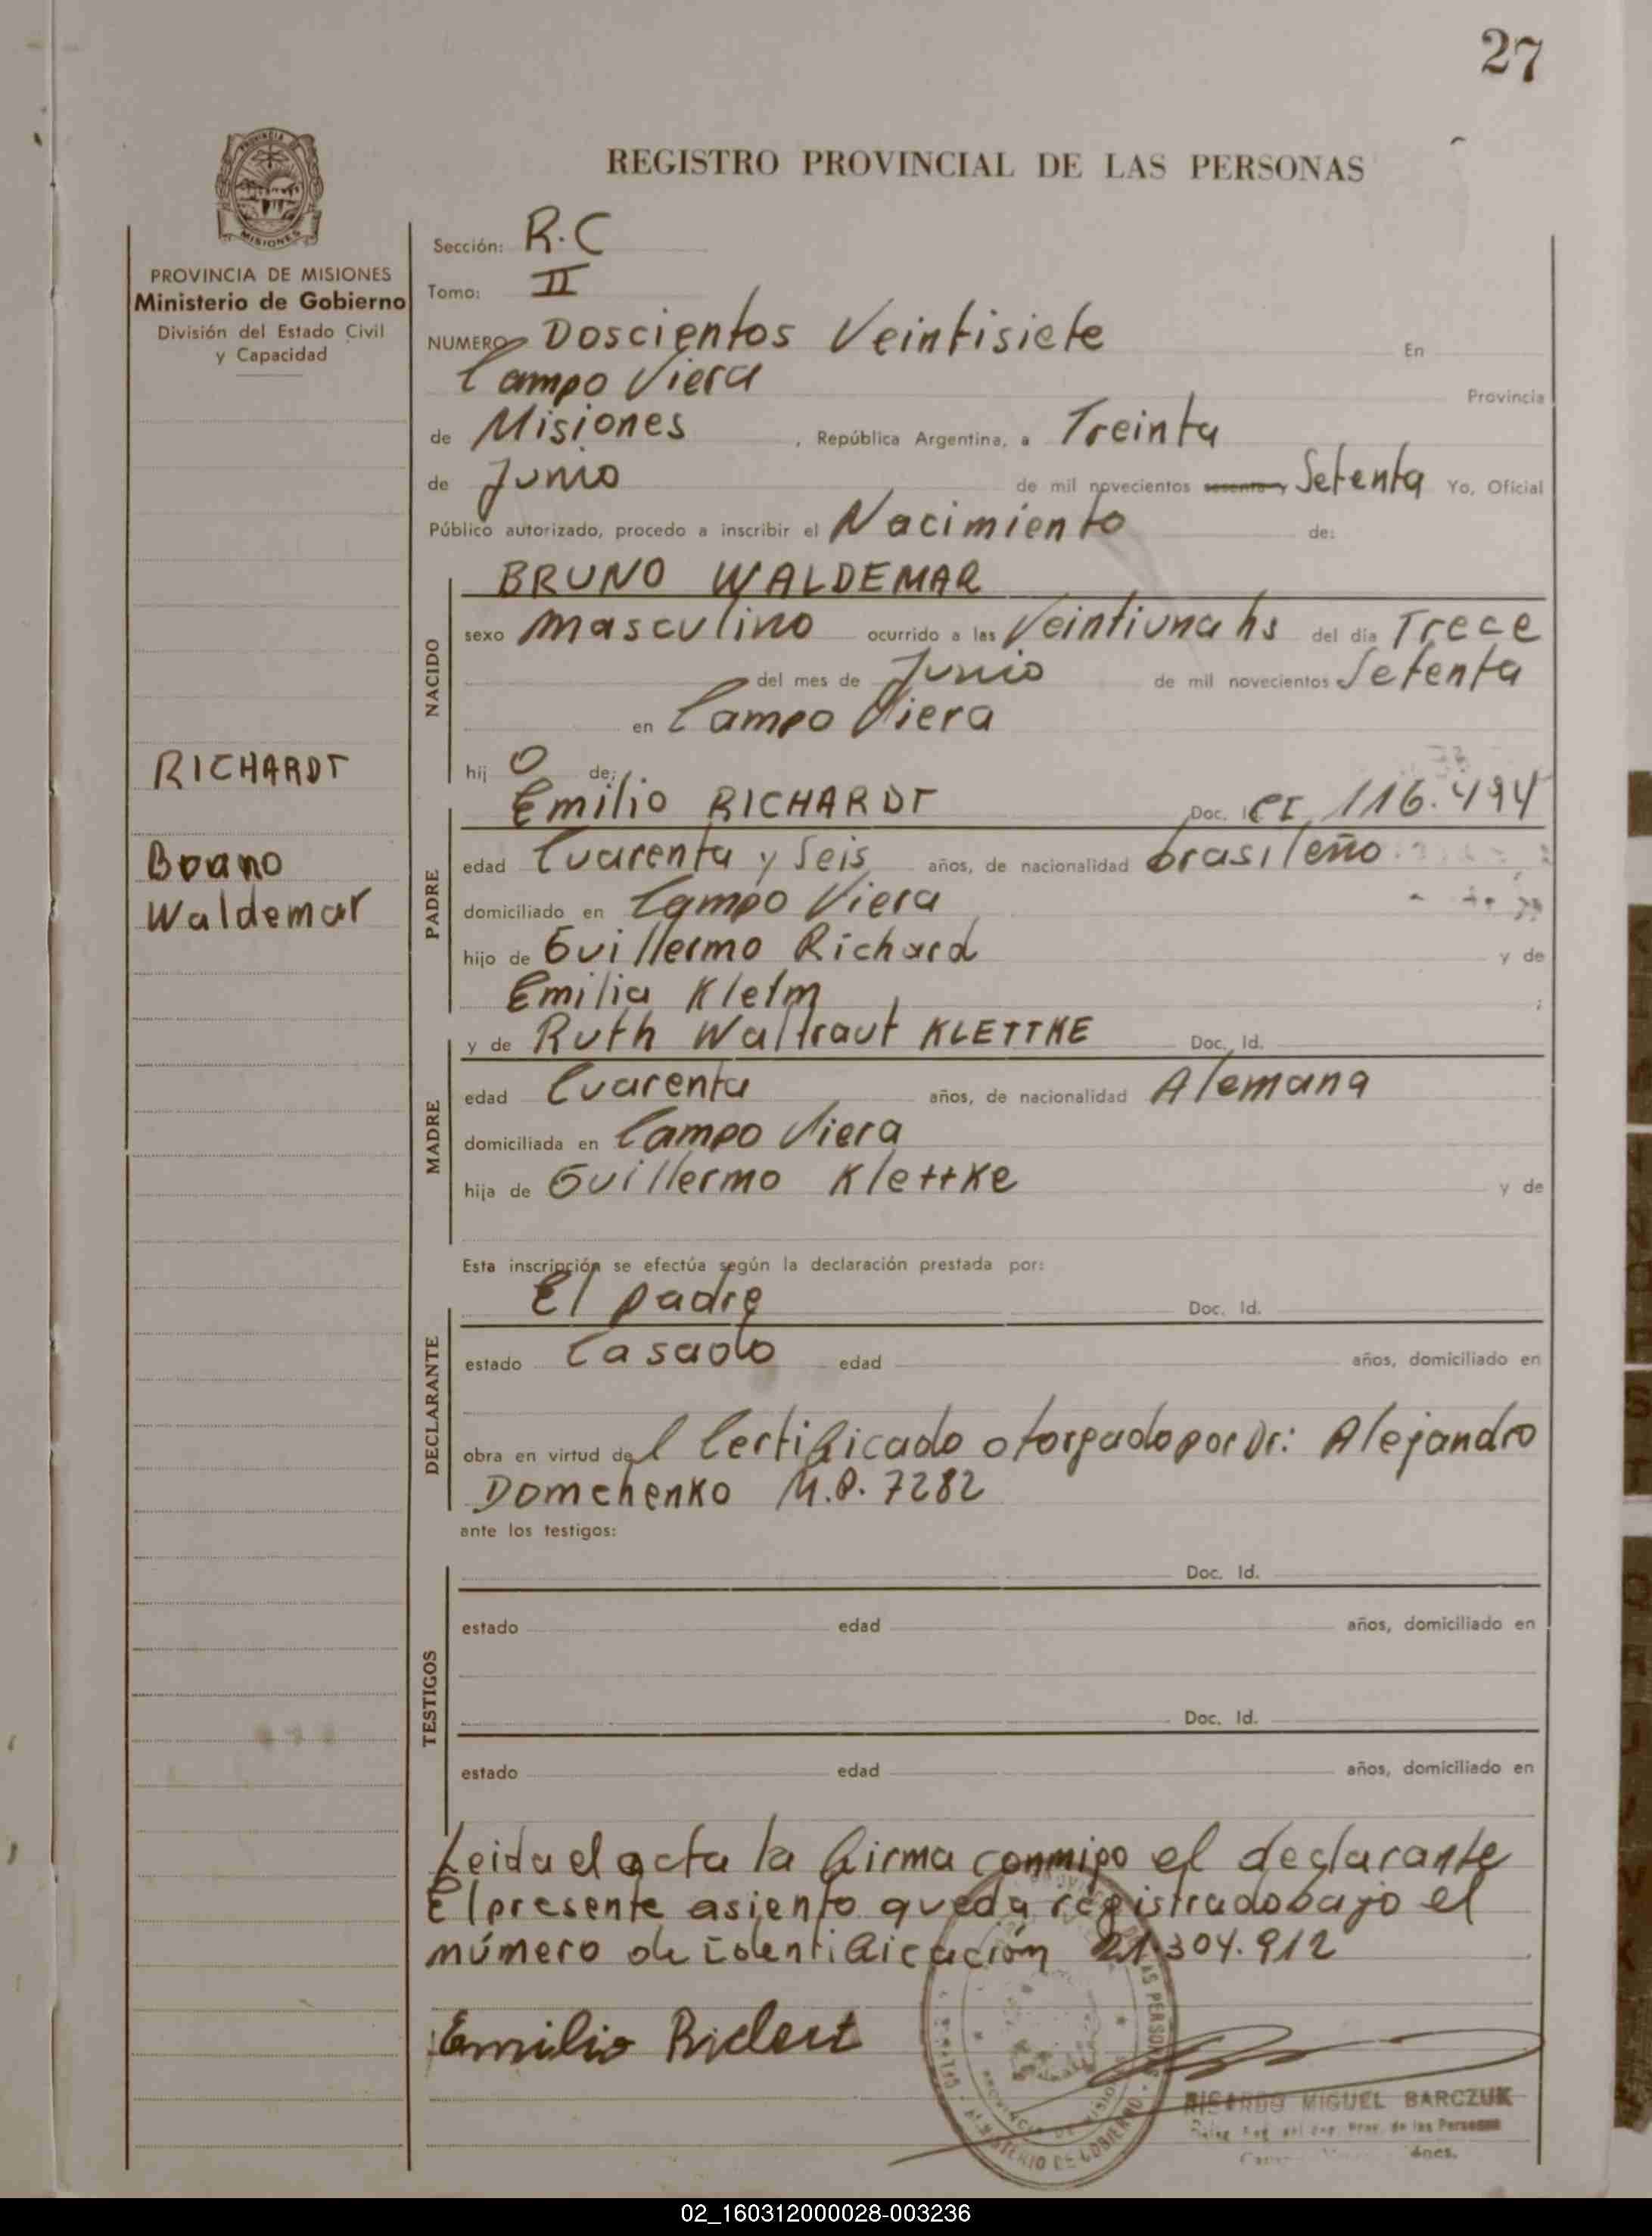 27
REGISTRO PROVINCIAL DE LAS PERSONAS
MISIONES
PROVINCIA DE MISIONES
Ministerio de Gobierno
División del Estado Civil
y Capacidad
Sección: R.C
Tomo: II
NUMERO Doscientos Veintisiete En
Campo Viera Provincia
de Misiones, República Argentina, a Treinta
de Junio de mil novecientos sesenta y Setenta Yo, Oficial
Público autorizado, procedo a inscribir el Nacimiento de:
NACIDO
BRUNO WALDEMAR
sexo masculino ocurrido a las Veintiuna hs del día Trece
del mes de Junio de mil novecientos Setenta
en Campo Viera
hij o de:
RICHARDT
Bruno
Waldemar
PADRE
Emilio RICHARDT Doc. I CI 116.494
edad Cuarenta y Seis años, de nacionalidad brasileño
domiciliado en Campo Viera
hijo de Guillermo Richard y de
Emilia Kletm
MADRE
y de Ruth Waltraut KLETTKE Doc. Id.
edad Cuarenta años, de nacionalidad Alemana
domiciliada en Campo Viera
hija de Guillermo Klettke y de
Esta inscripción se efectúa según la declaración prestada por:
DECLARANTE
El padre Doc. Id.
estado Casado edad años, domiciliado en
obra en virtud del Certificado otorgado por Dr: Alejandro
Domchenko M.P. 7282
ante los testigos:
TESTIGOS
Doc. Id.
estado edad años, domiciliado en
Doc. Id.
estado edad años, domiciliado en
Leida el acta la firma conmigo el declarante
El presente asiento queda registrado bajo el
número de identificación 21.304.912
Emilio Richert
RICARDO MIGUEL BARCZUK
de las Personas
MINISTERIO DE GOBIERNO
PROVINCIA DE MISIONES
02_160312000028-003236